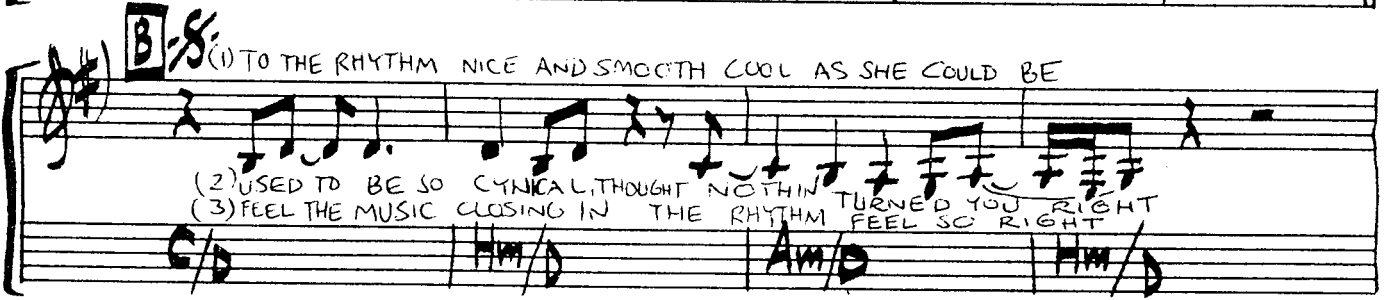 B (1) TO THE RHYTHM NICE AND SMOOTH COOL AS SHE COULD BE
(2) USED TO BE SO CYNICAL, THOUGHT NOTHIN TURNED YOU RIGHT
(3) FEEL THE MUSIC CLOSING IN THE RHYTHM FEEL SO RIGHT
C/D Hm/D Am/D Hm/D